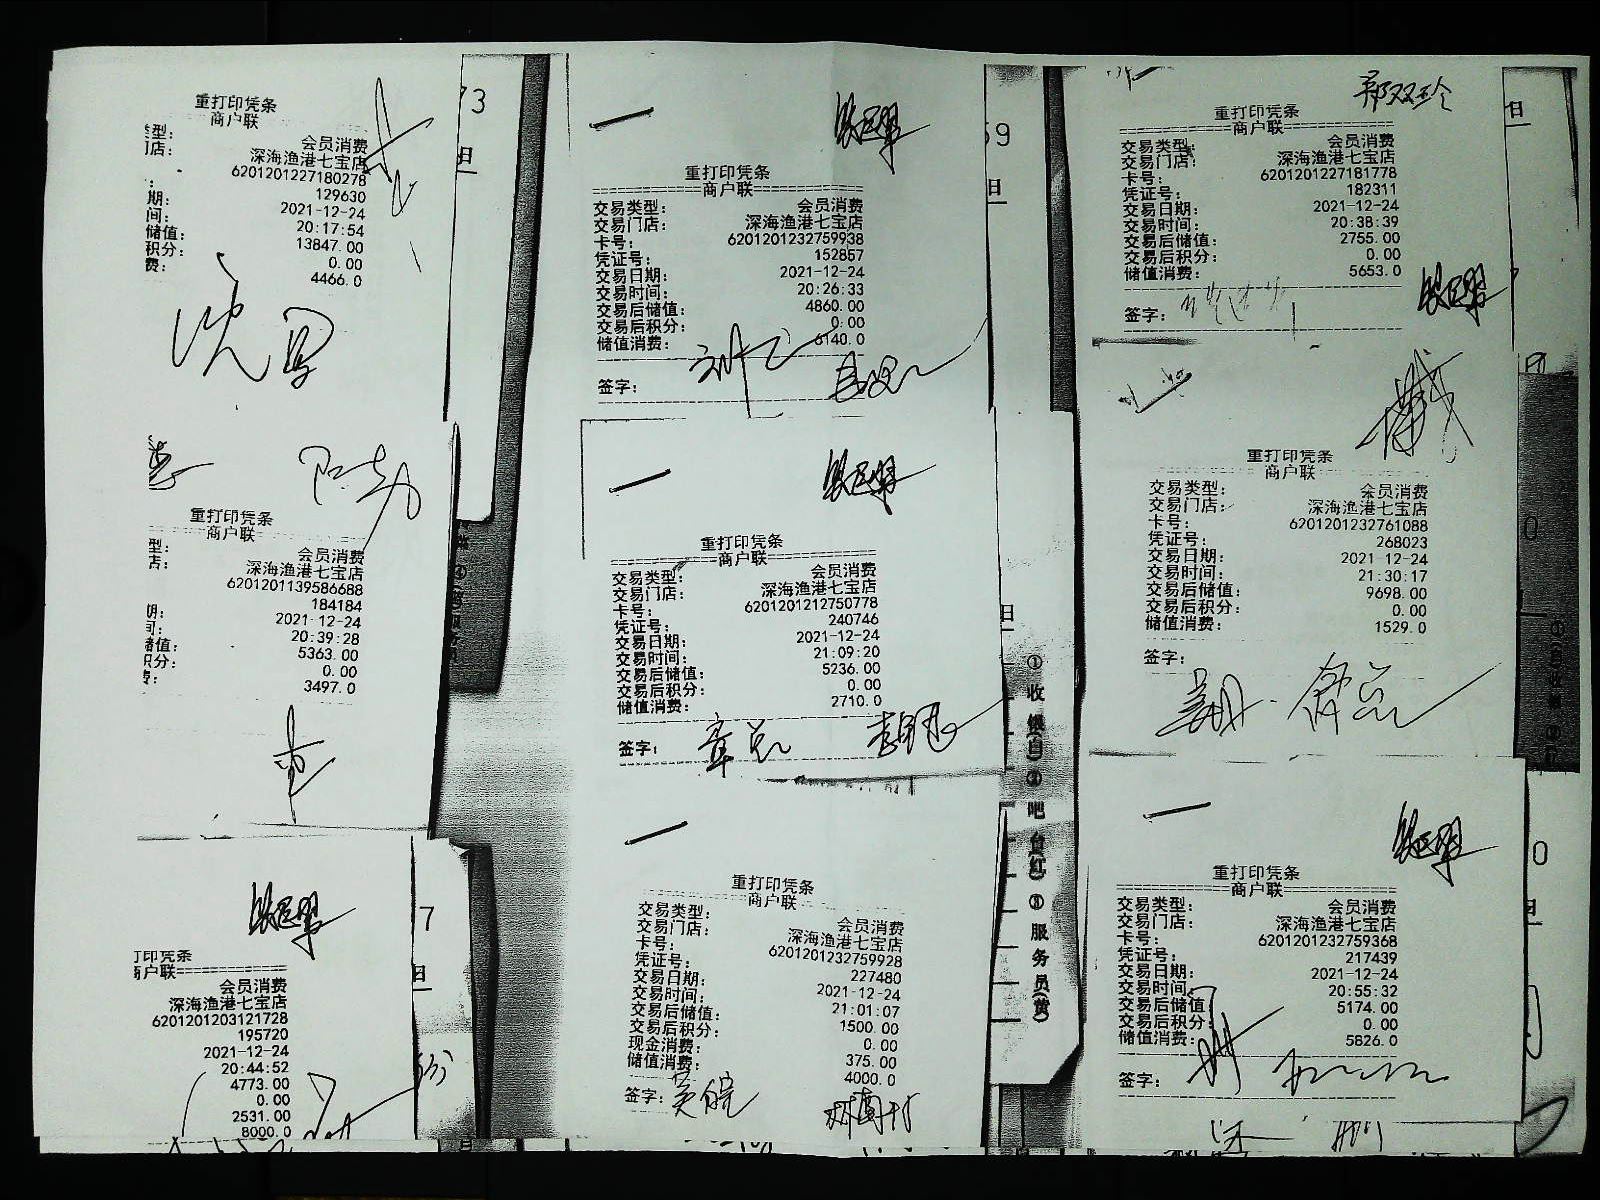 重打印凭条
商户联
类型:
会员消费
门店:
深海渔港七宝店
6201201227180278
129630
期:
2021-12-24
间:
20:17:54
储值:
13847.00
积分:
0.00
费:
4466.0
重打印凭条
商户联
型:
会员消费
店:
深海渔港七宝店
6201201139586688
184184
期:
2021-12-24
间:
20:39:28
储值:
5363.00
积分:
0.00
费:
3497.0
打印凭条
商户联
会员消费
深海渔港七宝店
6201201203121728
195720
2021-12-24
20:44:52
4773.00
0.00
2531.00
8000.0
73
日
7
日
重打印凭条
商户联
交易类型: 会员消费
交易门店: 深海渔港七宝店
卡号: 6201201232759938
凭证号: 152857
交易日期: 2021-12-24
交易时间: 20:26:33
交易后储值: 4860.00
交易后积分: 0.00
储值消费: 6140.0
签字:
重打印凭条
商户联
交易类型: 会员消费
交易门店: 深海渔港七宝店
卡号: 6201201212750778
凭证号: 240746
交易日期: 2021-12-24
交易时间: 21:09:20
交易后储值: 5236.00
交易后积分: 0.00
储值消费: 2710.0
签字: 章总
重打印凭条
商户联
交易类型: 会员消费
交易门店: 深海渔港七宝店
卡号: 6201201232759928
凭证号: 227480
交易日期: 2021-12-24
交易时间: 21:01:07
交易后储值: 1500.00
交易后积分: 0.00
现金消费: 375.00
储值消费: 4000.0
签字:
59
日
日
①收银(白)②吧台(红)③服务员(黄)
郑双玲
重打印凭条
商户联
交易类型: 会员消费
交易门店: 深海渔港七宝店
卡号: 6201201227181778
凭证号: 182311
交易日期: 2021-12-24
交易时间: 20:38:39
交易后储值: 2755.00
交易后积分: 0.00
储值消费: 5653.0
签字:
重打印凭条
商户联
交易类型: 会员消费
交易门店: 深海渔港七宝店
卡号: 6201201232761088
凭证号: 268023
交易日期: 2021-12-24
交易时间: 21:30:17
交易后储值: 9698.00
交易后积分: 0.00
储值消费: 1529.0
签字:
重打印凭条
商户联
交易类型: 会员消费
交易门店: 深海渔港七宝店
卡号: 6201201232759368
凭证号: 217439
交易日期: 2021-12-24
交易时间: 20:55:32
交易后储值: 5174.00
交易后积分: 0.00
储值消费: 5826.0
签字:
日
0
0
日